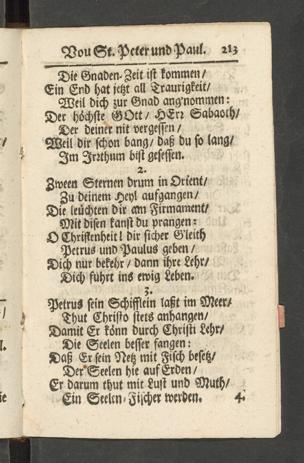 Von St. Peter und Paul. 213
Die Gnaden-Zeit ist kommen/
Ein End hat jetzt all Traurigkeit/
Weil dich zur Gnad ang'nommen:
Der höchste GOtt/ HErr Sabaoth/
Der deiner nit vergessen/
Weil dir schon bang/ daß du so lang/
Im Irrthum bist gesessen.
2.
Zween Sternen drum in Orient/
Zu deinem Heyl aufgangen/
Die leuchten dir am Firmament/
Mit disen kanst du prangen:
O Christenheit! dir sicher Gleith
Petrus und Paulus geben/
Dich nur bekehr/ dann ihre Lehr/
Dich führt ins ewig Leben.
3.
Petrus sein Schifflein laßt im Meer/
Thut Christo stets anhangen/
Damit Er könn durch Christi Lehr/
Die Seelen besser fangen:
Daß Er sein Netz mit Fisch besetz/
Der Seelen hie auf Erden/
Er darum thut mit Lust und Muth/
Ein Seelen-Fischer werden. 4.